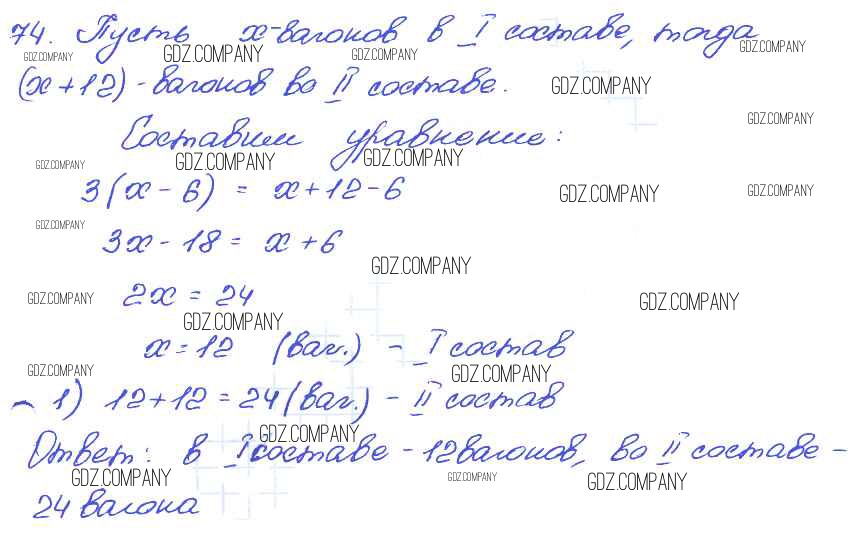 74. Пусть x-вагонов в I составе, тогда
GDZ.COMPANY GDZ.COMPANY GDZ.COMPANY GDZ.COMPANY
(x+12)-вагонов во II составе. GDZ.COMPANY
GDZ.COMPANY
Составим уравнение:
GDZ.COMPANY GDZ.COMPANY GDZ.COMPANY
3(x-6) = x+12-6 GDZ.COMPANY GDZ.COMPANY
GDZ.COMPANY
3x-18 = x+6
GDZ.COMPANY
GDZ.COMPANY 2x = 24 GDZ.COMPANY
GDZ.COMPANY
x=12 (ваг.) - I состав
GDZ.COMPANY GDZ.COMPANY
1) 12+12=24(ваг.) - II состав
GDZ.COMPANY
Ответ: в I составе - 12вагонов, во II составе -
GDZ.COMPANY GDZ.COMPANY GDZ.COMPANY
24 вагона